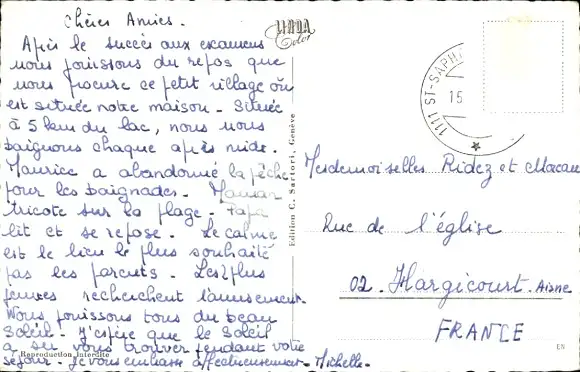 Chères Amies.
Après le succès aux examens
nous jouissons du repos que
nous procure ce petit village où
est située notre maison - Située
à 5 km du lac, nous nous
baignons chaque après midi.
Maurice a abandonné la pêche
pour les baignades - Maman
tricote sur la plage - Papa
lit et se repose - Le calme
est le lieu le plus souhaité
pas les parents - Les 2 plus
jeunes recherchent l'amusement.
Nous jouissons tous du beau
Soleil - J'espère que le Soleil
a su vous trouver pendant votre
séjour - Je vous embrasse affectueusement - Michelle -
Reproduction Interdite
LINDA
Color
Edition C. Sartori, Genève
1111 ST-SAPH
15
Mesdemoiselles Ridez et Macau
Rue de l'église
02. Hargicourt. Aisne
FRANCE
EN